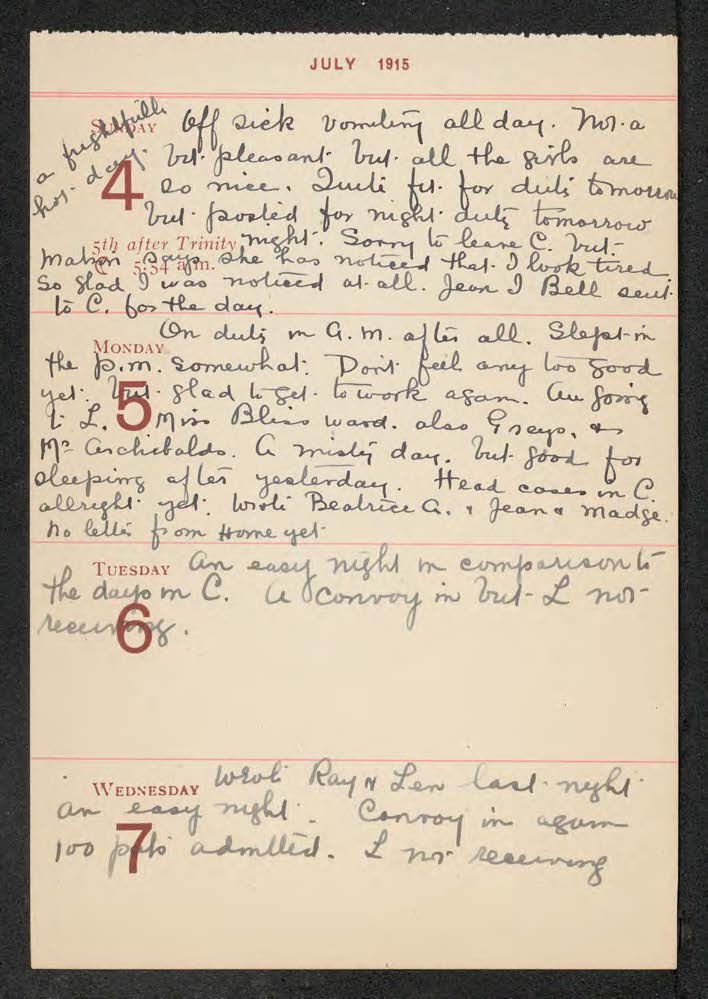 JULY 1915
a frightfully
hot day.
SUNDAY Off sick vomiting all day. Not a
4 bit pleasant but all the girls are
so nice. Quite fit for duty tomorrow
but posted for night duty tomorrow
5th after Trinity night. Sorry to leave C. but
5.54 a.m.
Matron says she has noticed that I look tired
So glad I was noticed at all. Jean I Bell sent
to C. for the day.
On duty in A.M. after all. Slept in
MONDAY
the p.m. somewhat. Don't feel any too good
yet. but glad to get to work again. Am going
5
to L. Miss Bliss ward. also Greys, &
Mrs Archibalds. A misty day. but good for
sleeping after yesterday. Head cases in C.
allright yet. Wrote Beatrice A. & Jean & Madge.
No letter from Home yet
TUESDAY An easy night in comparison to
the days in C. A Convoy in but L not
6 receiving.
WEDNESDAY Wrote Ray & Len last night
an easy night. Convoy in again
7
100 pats admitted. L not receiving